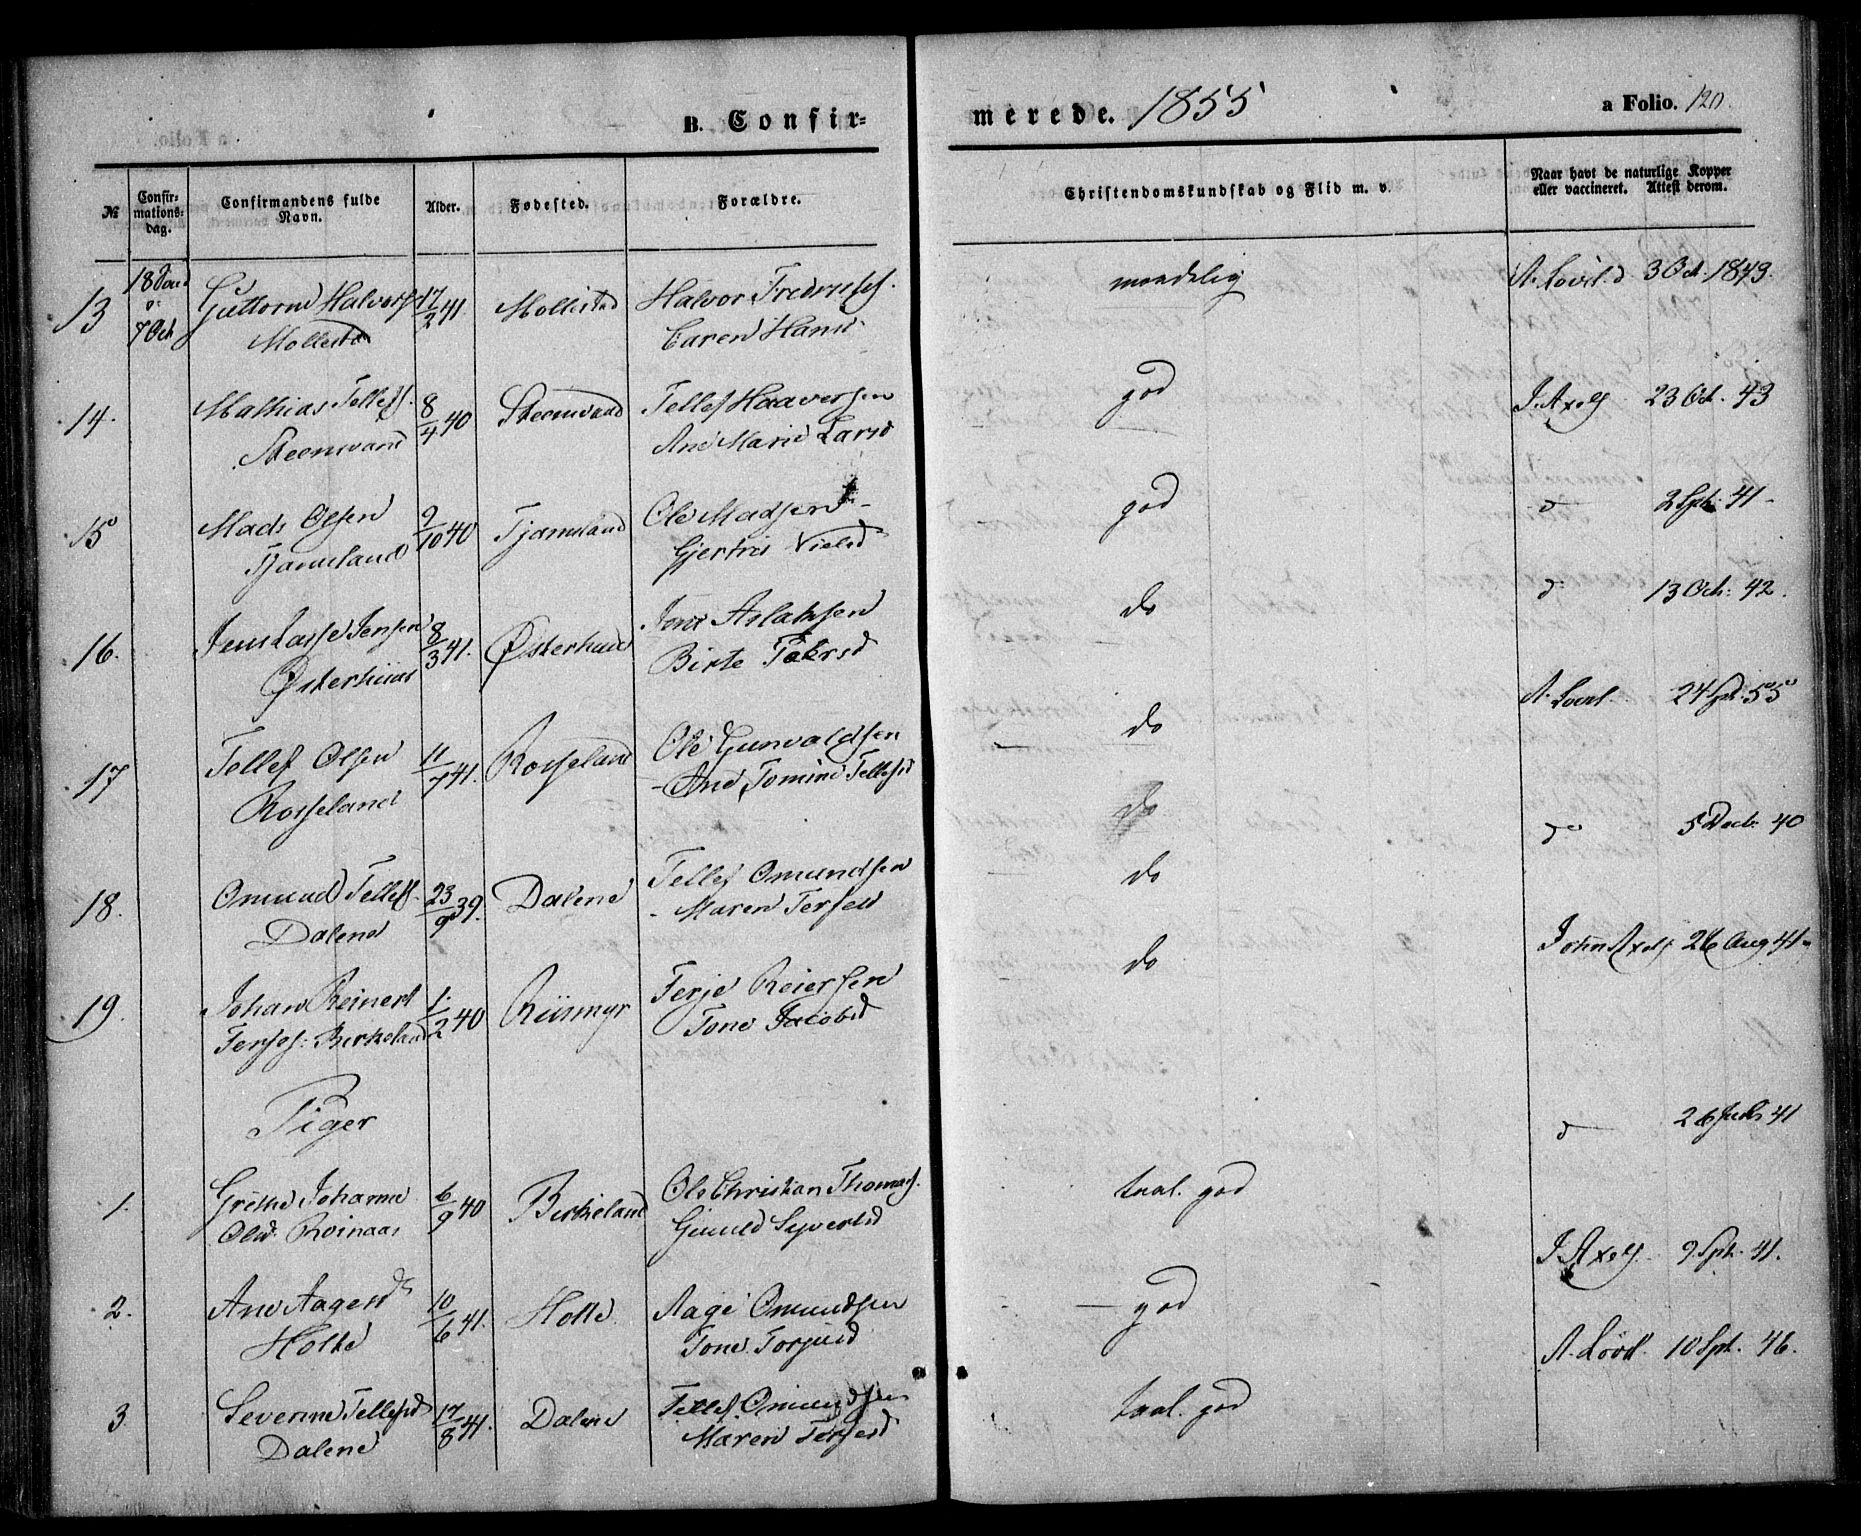 B. Confirmerede. 1855 a Folio. 120.
№ Confirmations-dag. Confirmandens fulde Navn. Alder. Fødested. Forældre. Christendomskundskab og Flid m. v. Naar havt de naturlige Kopper eller vaccineret. Attest derom.
13 7 Oct Guttorm Halvors. 17/2 41. Mollestad Halvor Fredriks. maadelig A. Lovd 3 Oct. 1843.
Mollestad Caren Hansd
14. Mathias Tellefs. 8/4 40 Steenvand Tellef Haaversen god J. Axels 23 Oct. 43
Steenvand Ane Marie Larsd
15 Mads Olsen 9/10 40 Tjameland Ole Madsen god d 2 Spt: 41
Tjameland Gjertrud Nielsd
16. Jens Lasse Jensen 8/3 41. Østerhuus Jens Aslaksen do d 13 Oct: 42.
Østerhuus Birte Pedersd
17 Tellef Olsen 11/7 41. Rosseland Ole Gunvaldsen do A. Lovd. 24 Spt. 55
Rosseland Ane Tomine Tellefsd
18. Omund Tellefs. 23/9 39. Dalene Tellef Omundsen do do 5 Decb: 40
Dalene Maren Terjesd
19. Johan Reinert 1/2 40 Riismyr Terje Reiersen do John Axels 26 Aug 41
Terjes: Birkeland Tone Jacobsd
Piger
1. Grethe Johanne 6/9 40 Birkeland Ole Christian Thomas. taal. god d 26 Juli 41
Olsd. Roinaas Gunild Syvertsd
2. Ane Aagesd 10/6 41. Holte Aage Omundsen god J. Axels. 9 Spt. 41.
Holte Tone Torjusd
3 Severine Tellefsd 17/8 41. Dalene Tellef Omundsen taal. god A. Lövd 10 Spt. 46.
Dalene Maren Terjesd